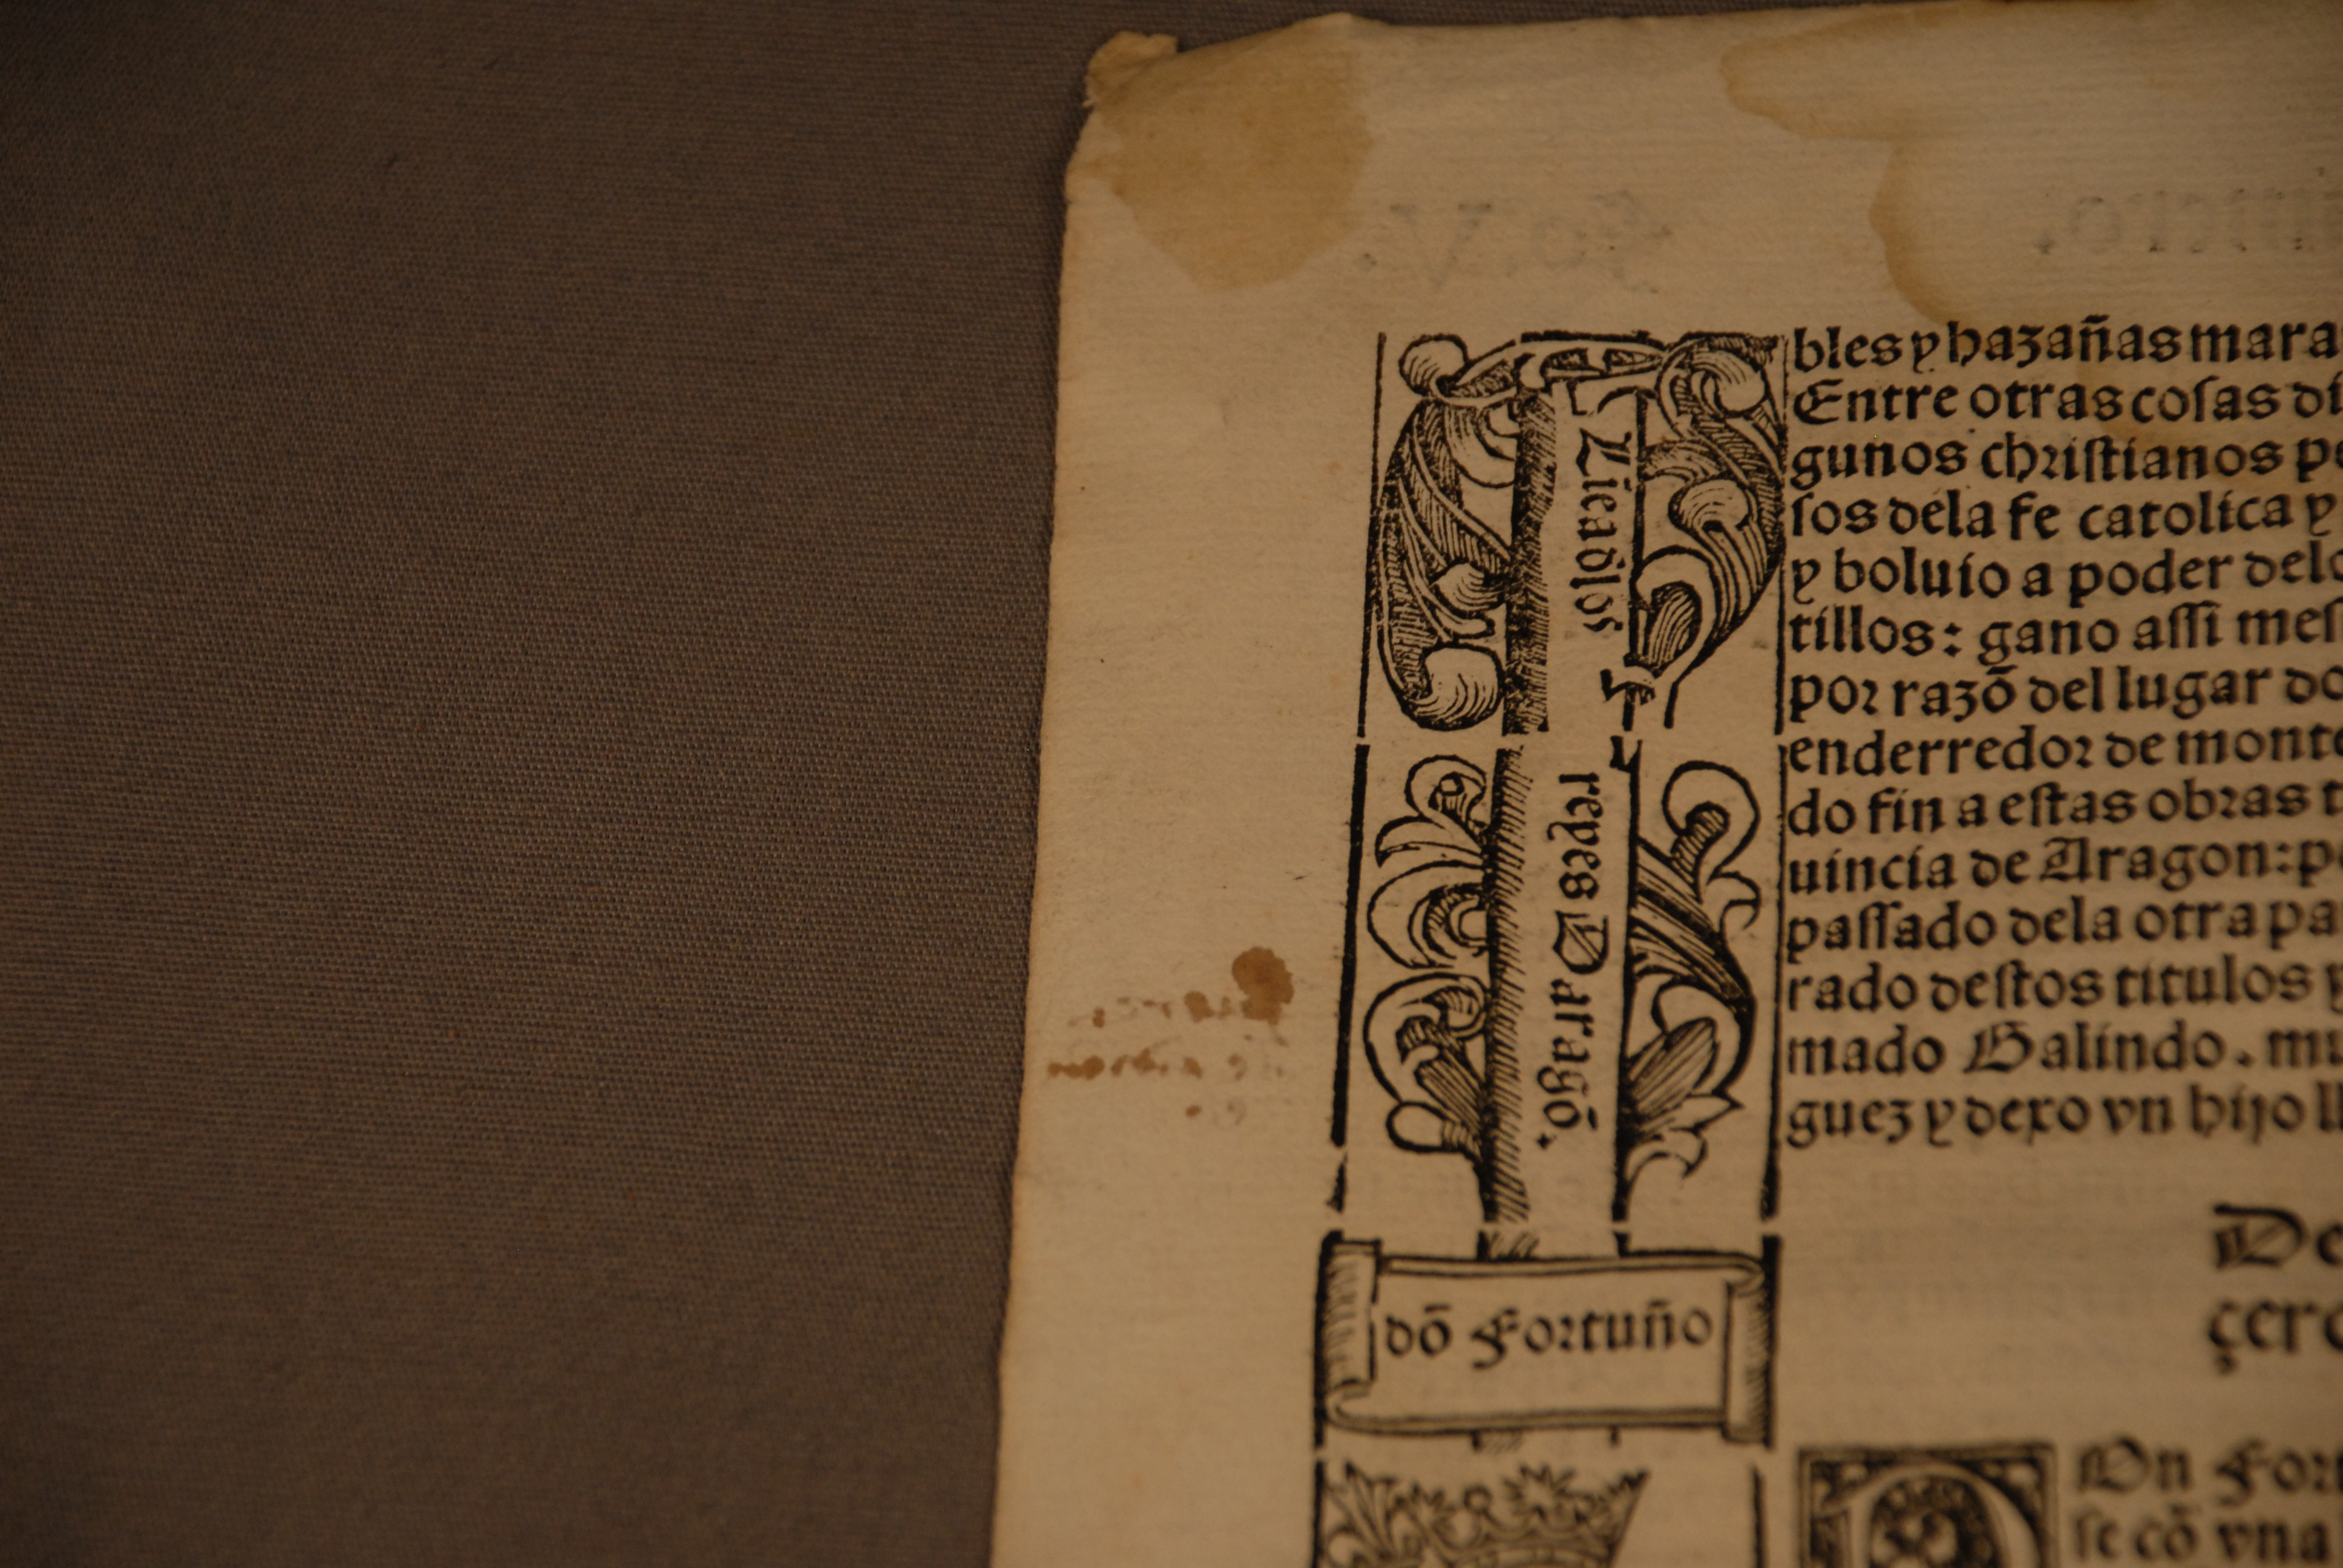 Linea dlos
reyes Daragō.
dō Fortuño
bles y hazañas mara
Entre otras cosas di
gunos christianos pe
sos dela fe catolica y
y boluio a poder delo
tillos: gano assi mes
por razō del lugar do
enderredor de monte
do fin a estas obras t
uincia de Aragon: p
passado dela otra pa
rado destos titulos y
mado Galindo. mu
guez y dexo vn hijo ll
De
çerc
DOn For
se cō vna